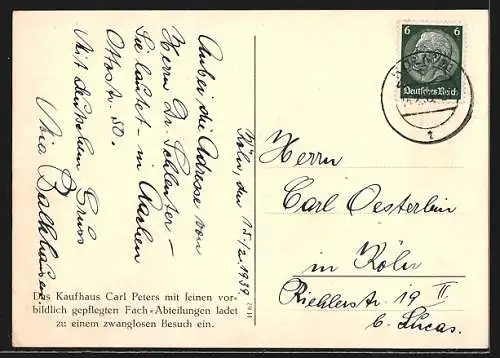 Köln, den 15/2.1939.
Anbei die Adresse von
Herrn Dr. Schlenter –
Sie lautet – in Aachen
Ottostr. 80.
Mit deutschem Gruss
Balkhausen.
Das Kaufhaus Carl Peters mit seinen vor-
bildlich gepflegten Fach-Abteilungen ladet
zu einem zwanglosen Besuch ein.
6 6
Deutsches Reich
Herrn
Carl Oesterlein
in Köln
Riehlerstr. 19 II
b. Lucas.